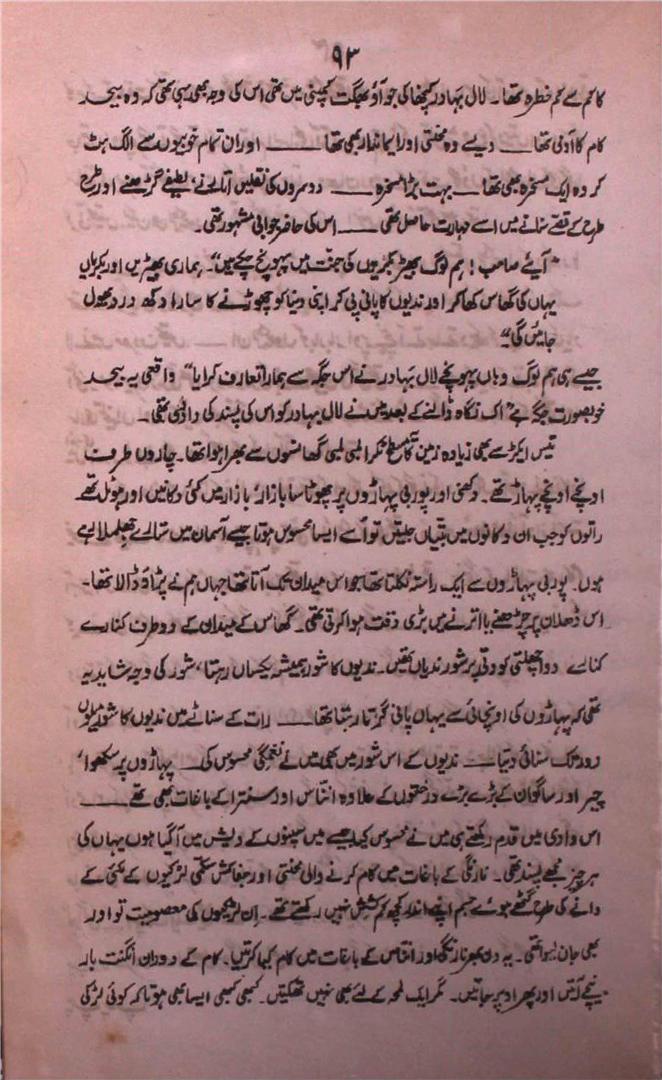 ۹۳
کا کم سے کم خطرہ تھا۔ لال بہادر کچھا کی جو آؤ بھگت کمپنی میں تھی اس کی وجہ بھی یہی تھی کہ وہ بیحد
کام کا آدمی تھا ــــ ویسے وہ محنتی اور ایماندار بھی تھا ــــ اور ان تمام خوبیوں سے الگ ہٹ
کر وہ ایک مسخرہ بھی تھا ــــ بہت بڑا مسخرہ ــــ دوسروں کی نقلیں اتارنے، لطیفے گڑھنے اور طرح
طرح کے قصے سنانے میں اسے مہارت حاصل تھی ــــ اس کی حاضر جوابی مشہور تھی۔
"آیئے صاحب! ہم لوگ بھیڑ بکریوں کی جنت میں پہونچ چکے ہیں"۔ ہماری بھیڑیں اور بکریاں
یہاں کی گھاس کھا کر اور ندیوں کا پانی پی کر اپنی دنیا کو چھوڑنے کا سارا دکھ درد بھول
جائیں گی"
جیسے ہی ہم لوگ وہاں پہونچے لال بہادر نے اس جگہ سے ہمارا تعارف کرایا "واقعی یہ بیحد
خوبصورت جگہ ہے" اک نگاہ ڈالنے کے بعد میں نے لال بہادر کو اس کی پسند کی داد دی تھی۔
تیس ایکڑ سے بھی زیادہ زمین کا مسطح ٹکڑا لمبی لمبی گھانسوں سے بھرا ہوا تھا۔ چاروں طرف
اونچے اونچے پہاڑ تھے۔ دکھنی اور پوربی پہاڑوں پر چھوٹا سا بازار، بازار میں کئی دکانیں اور ہوٹل تھے
راتوں کو جب ان دکانوں میں بتیاں جلتیں تو اُسے ایسا محسوس ہوتا جیسے آسمان میں ستارے جھلملا رہے
ہوں۔ پوربی پہاڑوں سے ایک راستہ نکلتا تھا جو اس میدان تک آتا تھا جہاں ہم نے پڑاؤ ڈالا تھا۔
اس ڈھلان پر چڑھنے یا اترنے میں بڑی دقت ہوا کرتی تھی۔ گھاس کے میدان کے دو طرف کنارے
کنارے دو اچھلتی کودتی پر شور ندیاں تھیں۔ ندیوں کا شور ہمیشہ یکساں رہتا، شور کی وجہ شاید یہ
تھی کہ پہاڑوں کی اونچائی سے یہاں پانی گرتا رہتا تھا ــــ رات کے سناٹے میں ندیوں کا شور میلوں
دور تک سنائی دیتا ــــ ندیوں کے اس شور میں بھی میں نے نغمگی محسوس کی ــــ پہاڑوں پر سکھوا،
چیر اور ساگوان کے بڑے بڑے درختوں کے علاوہ انناس اور سنترا کے باغات بھی تھے ــــ
اس وادی میں قدم رکھتے ہی میں نے محسوس کیا جیسے میں سپنوں کے دیش میں آ گیا ہوں یہاں کی
ہر چیز مجھے پسند تھی۔ نارنگی کے باغات میں کام کرنے والی محنتی اور جفاکش سکمی لڑکیوں کے مکئی کے
دانے کی طرح گٹھے ہوئے جسم اپنے اندر کچھ کم کشش نہیں رکھتے تھے۔ ان لڑکیوں کی معصومیت تو اور
بھی جان لیوا تھی۔ یہ دن بھر نارنگی اور انناس کے باغات میں کام کیا کرتیں۔ کام کے دوران انگنت بار
نیچے آتیں اور پھر اوپر جاتیں۔ مگر ایک لمحہ کے لئے بھی نہیں تھکتیں۔ کبھی کبھی ایسا بھی ہوتا کہ کوئی لڑکی